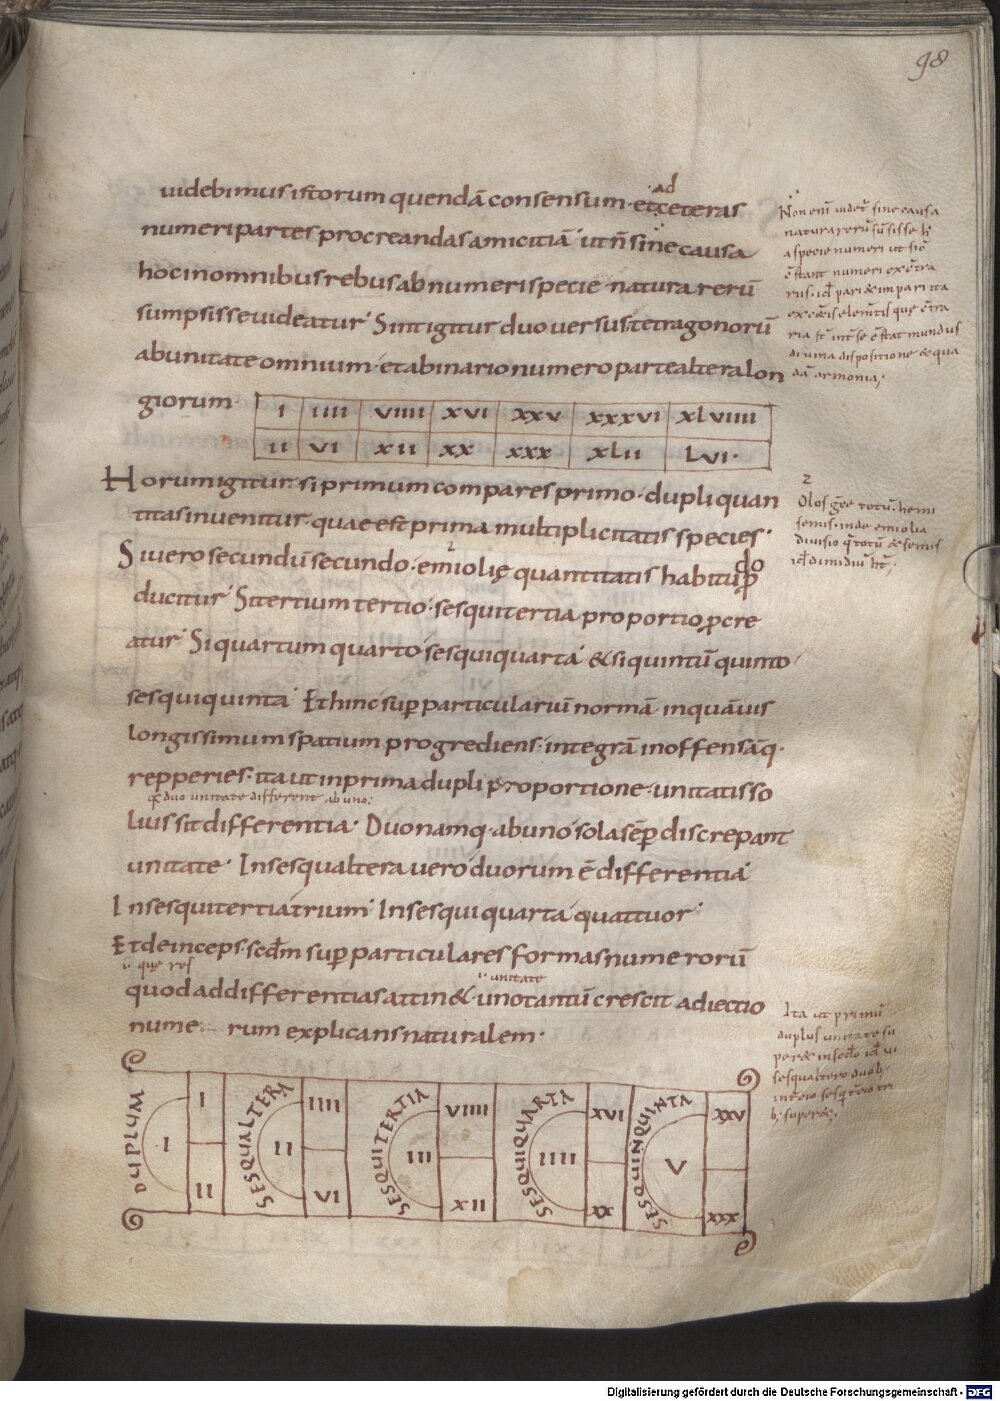 98
uidebimus istorum quendā consensum· et ad ceteras
numeri partes procreandas amicitiā· ut ñ sine causa
hoc in omnibus rebus ab numeri specie· natura rerū
sumpsisse uideatur· Sint igitur duo uersus tetragonorū
ab unitate omnium· et ab inario numero parte altera lon
giorum·
I IIII VIIII XVI XXV XXXVI XLVIIII
II VI XII XX XXX XLII LVI·
Horum igitur· si primum compares primo· dupli quan
titas inuenitur· quae est prima multiplicitatis species·
Si uero secundū secundo· emiolię quantitatis habitudo ꝓ
ducitur· Si tertium tertio· sesquitertia proportio ꝓcre
atur· Si quartum quarto· sesquiquarta· & si quintū quinto·
sesquiquinta· Et hinc suꝑparticulariū normā· in quāuis
longissimum spatium progrediens· integrā inoffensāq·
repperies· ita ut in prima dupli proportione· unitatis so
q̄ duo unitate different ab uno;
lius sit differentia· Duo namq· ab uno· sola sēꝑ discrepant
unitate· In sesqualtera uero· duorum ē differentia·
In sesquitertia trium· In sesquiquarta quattuor·
Et deinceps· scd̄m suꝑparticulares formas numerorū
quod ad differentias attin&· uno tantū crescit adiectio
numerum explicans naturalem·
Non enī uidet̄ sine causa
natura rerū sūpsisse h̄
a specie numeri ut sic̄
c̄stant numeri ex c̄tra
riis· id̄ pari & impari ita
diuina dispositione & qua
dā armonia;
2
Olos gr̄e totū· hemi
semis· inde emiolia
diuisio q̄ totū & semis
id̄ dimidiū h̄t;
Ita ut primū
duplus unitate su
DUPLUM I I II
SESQUALTERA II IIII VI
SESQUITERTIA III VIIII XII
SESQUIQUARTA IIII XVI XX
SESQUINQUINTA V XXV XXX
Digitalisierung gefördert durch die Deutsche Forschungsgemeinschaft - DFG